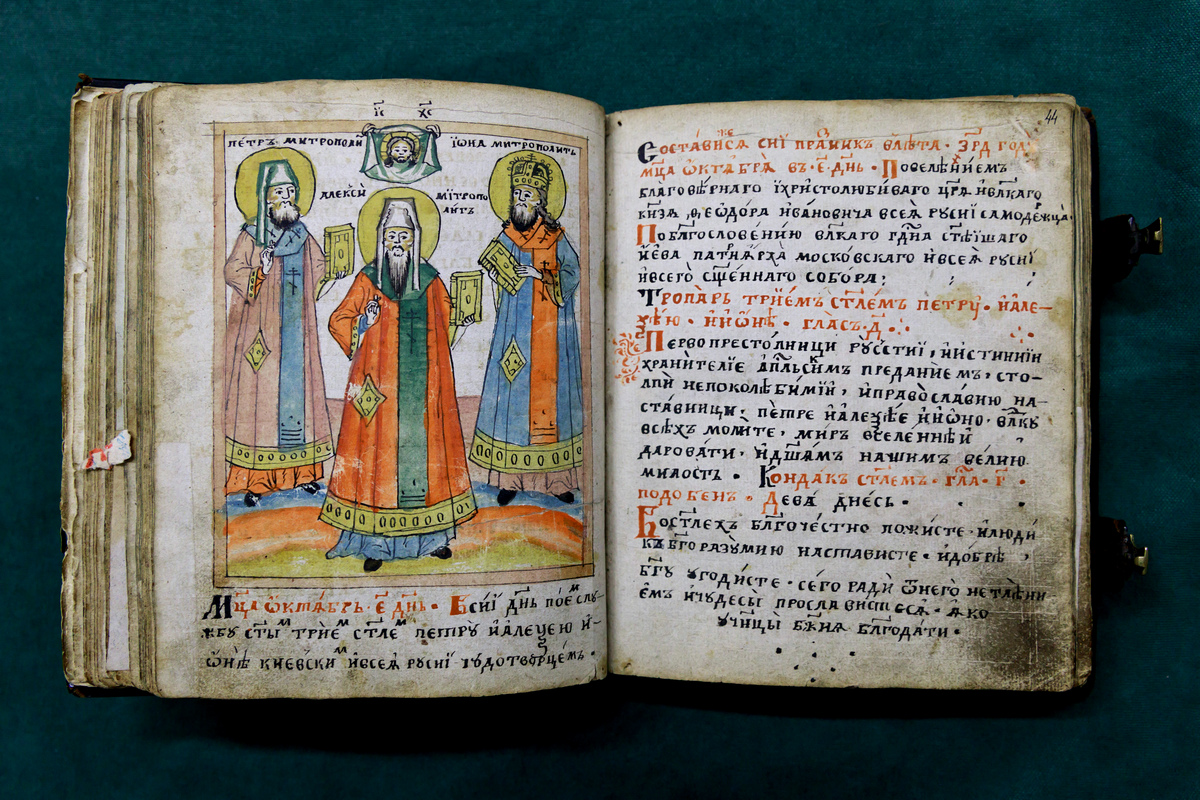 І҃С Х҃С
ПЕТРЪ МИТРОПОЛИ
ІѠНА МИТРОПОЛИТЪ
АЛЕКСІЙ МІТРОПО
ЛИТЪ
Мц҃а ѡктѧбрь · є҃ · дн҃ь · Всиї дн҃ь поеⷨ слу
жбу ст҃ыⷨ триеⷨ ст҃леⷨ петру и алеѯею и і
ѡнѣ киевскиⷨ и всеѧ русиї чудотворцемъ ·
44
Состависѧ сиї праⷥникъ влѣта · ҂зр҃д году
мц҃а ѡктѧбрѧ въ · є҃ · дн҃ь · Повелѣнїемъ
благовѣрнаго їхристолюбиваго цр҃ѧ ивл҃каго
кнѧзѧ ѳеѡдора ивановича всеѧ русиї самодержца
Поблг҃ословению вл҃каго гд҃на ст҃ѣїшаго
иева патриарха московскаго ивсеѧ русиї
ивсего сщ҃еннаго собора ;
Тропарь трїемъ ст҃лемъ петру · иале
ѯѣю · иїѡнѣ · гласъ · д҃ ·
Первопрестолници русстиї , иистиннїи
хранителїе ап҃льскимъ преданиемъ , сто
лпи непоколѣбимїи , иправославию на
ставници , петре иалеѯѣе иїѡно · вл҃ку
всѣхъ молите , миръ вселеннѣй
даровати , ид҃шамъ нашимъ велию
милость · Кондакъ ст҃лемъ · гла · г҃ ·
подобенъ · Дева днесь ·
Вост҃лехъ блг҃очестно пожисте · илюди
къ бг҃оразумию настависте · идобрѣ
бг҃у угодисте · сего ради ѿнего нетлѣни
емъ ичудесы прославистесѧ · ѧко
учн҃цы бж҃иѧ блг҃одати ·